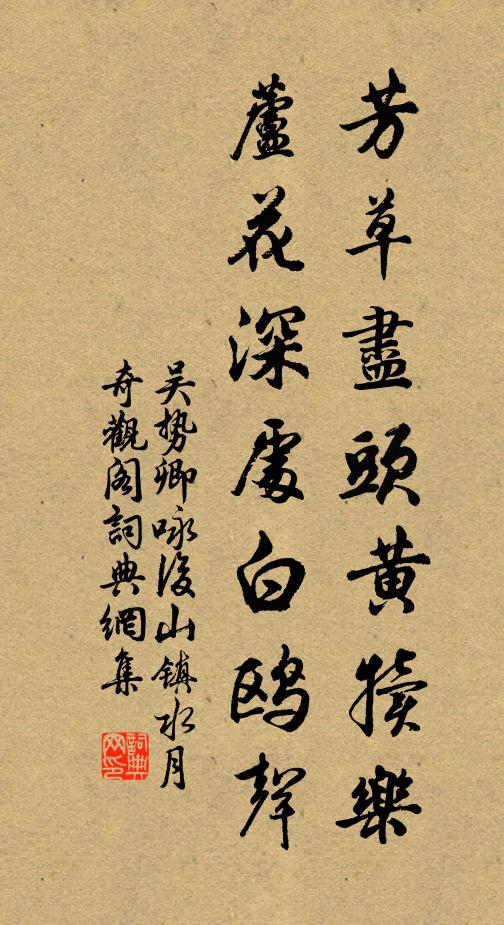 芳草盡頭黃犢樂
蘆花深處白鷗聲
吴勢卿咏後山鎮水月
奇觀閣詞典網集
詞典網印